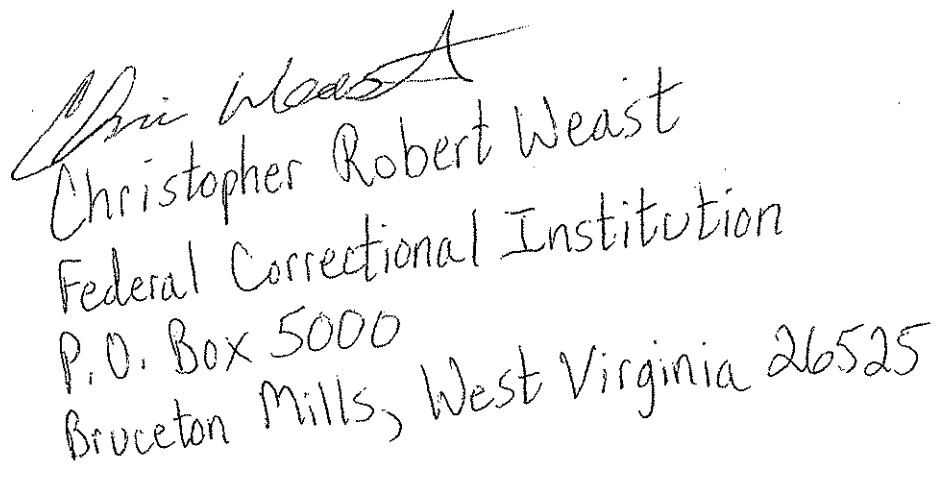 Chris Weast
Christopher Robert Weast
Federal Correctional Institution
P.O. Box 5000
Bruceton Mills, West Virginia 26525